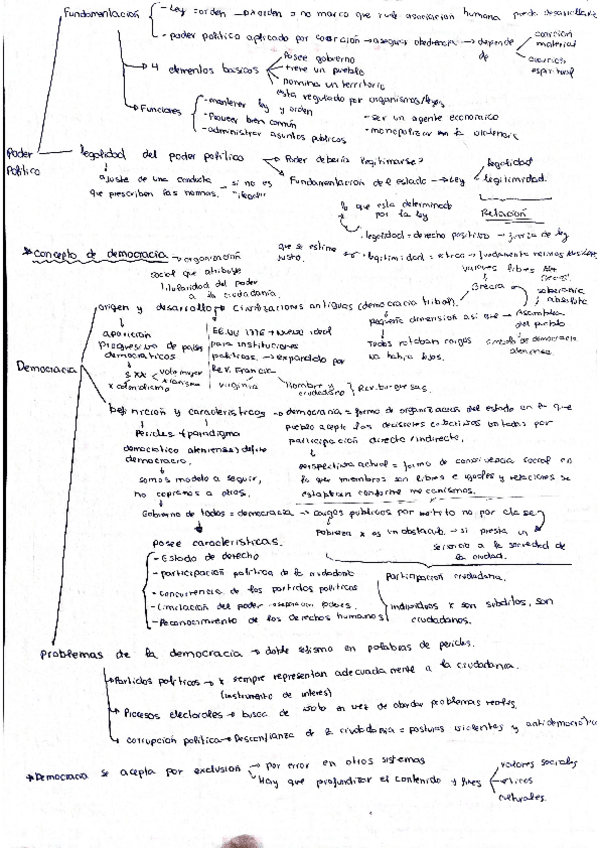 Fundamentación
- Ley y orden → orden o no marco que rige asociación humana puede desarrollarse
- poder político aplicado por coacción → asegura obediencia → depende de
coacción material
coacción espiritual
4 elementos básicos
Posee gobierno
tiene un pueblo
nomina un territorio
esta regulado por organismos/leyes
Funciones
- mantener ley y orden
- Proveer bien común
- administrar asuntos públicos
- ser un agente económico
- monopolizar en la violencia
Poder Político
legalidad del poder político
→ Poder debería legitimarse?
→ Fundamentación del estado → Ley
legalidad
legitimidad.
ajuste de una conducta
que prescriben las normas.
- si no es
- ilegular
lo que esta determinado
por la ley
Relación
. legalidad = derecho positivo → fuerza de ley
que se estime
justo.
. legitimidad = etica → fundamento normas
* concepto de democracia → organización
social que atribuye
titularidad del poder
a la ciudadanía.
valores libres
Democracia
origen y desarrollo → Civilizaciones antiguas (democracia tribal).
Grecia
soberanía
absoluta
pequeña dimensión así que → Asamblea
del pueblo
Todos rotaban cargos
no había lujos.
simbolo de democracia
ateniense.
aparición
progresiva de países
democráticos
SXX
x colonialismo
EE.UU 1776 → nuevo ideal
para instituciones
políticas. → expandido por
Rev. Francia
Virginia
Hombre y
ciudadano
} Rev. burguesas.
Definición y características → democracia = forma de organización del estado en la que
pueblo acepta las decisiones colectivas votadas por
participación directa/indirecta.
Pericles → (paradigma
democratico ateniense) definio
democracia.
somos modelo a seguir,
no copiamos a otros.
perspectiva actual = forma de convivencia social en
la que miembros son libres e iguales y relaciones se
establecen conforme mecanismos.
Gobierno de todos = democracia → cargos públicos por mérito no por clase
Pobreza x es un obstáculo → si presta un
servicio a la sociedad de
la ciudad.
posee características.
- Estado de derecho
- participación política de la ciudadanía
- concurrencia de los partidos políticos
- Limitación del poder → separación poderes.
- Reconocimiento de los derechos humanos
Participación ciudadana.
individuos x son subditos, son
ciudadanos.
Problemas de la democracia → doble sentido en palabras de pericles.
Partidos políticos → x siempre representan adecuadamente a la ciudadanía.
(instrumento de interes)
Procesos electorales → busca de voto en vez de abordar problemas reales.
corrupción política → Desconfianza de la ciudadanía = posturas violentas y antidemocrática
* Democracia se acepta por exclusión → por error en otros sistemas
→ Hay que profundizar el contenido y fines
valores sociales
eticos
culturales.